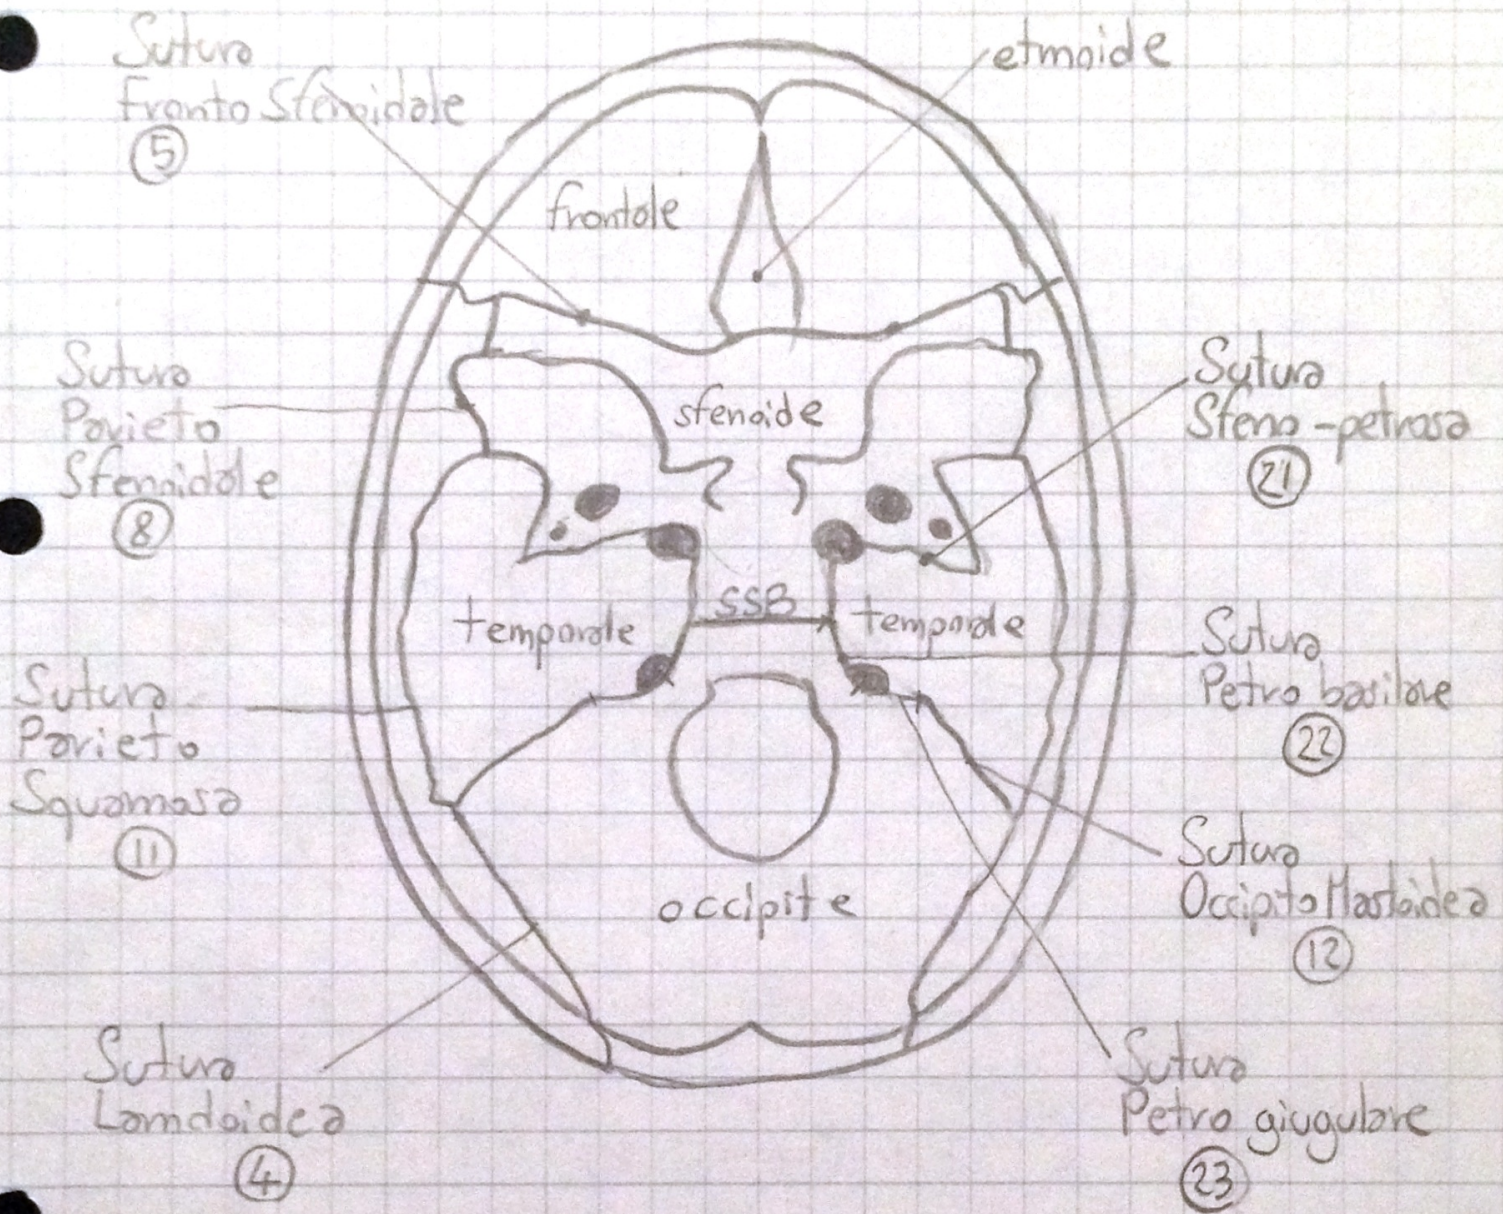 Sutura
Fronto Sfenoidale
5
etmoide
frontale
Sutura
Parieto
Sfenoidale
8
sfenoide
Sutura
Sfeno-petrosa
21
temporale
SSB
temporale
Sutura
Petro basilare
22
Sutura
Parieto
Squamosa
11
Sutura
Occipito Mastoidea
12
occipite
Sutura
Lamdoidea
4
Sutura
Petro giugulare
23